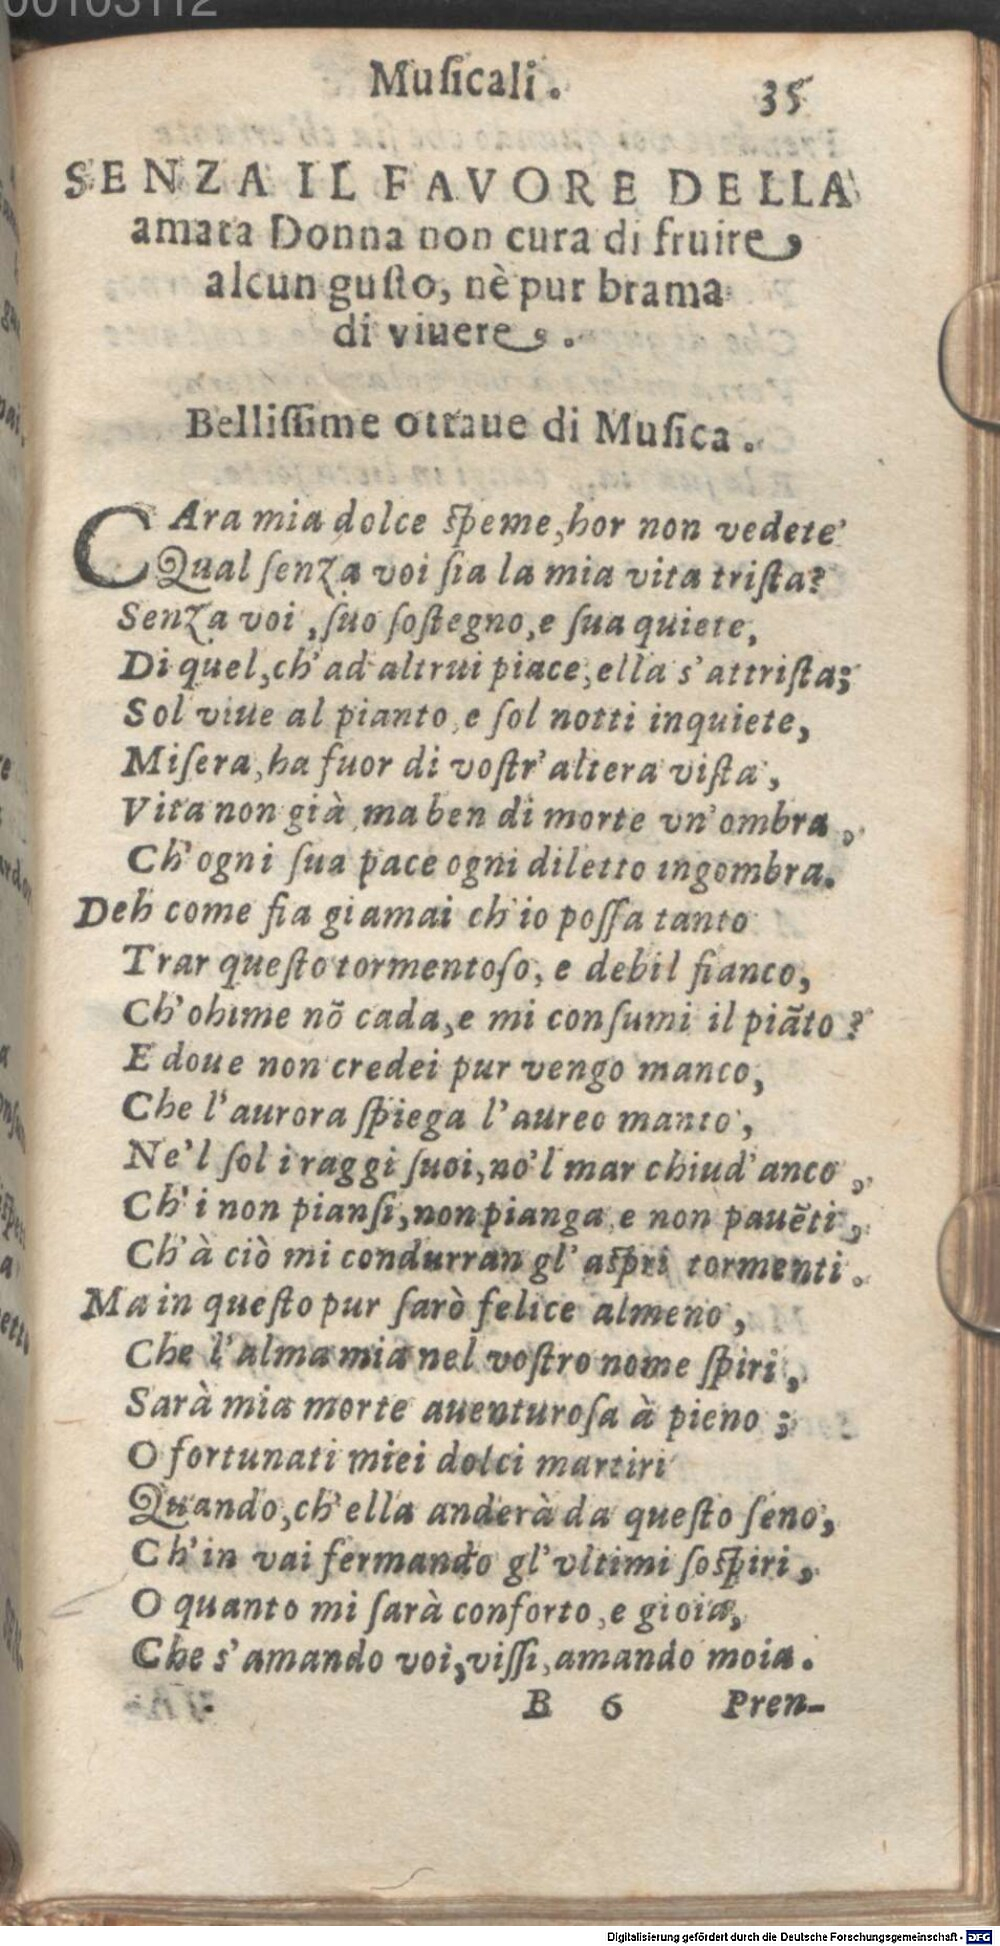 00103112
Musicali. 35
SENZA IL FAVORE DELLA
amata Donna non cura di fruire,
alcun gusto, nè pur brama
di viuere.
Bellissime ottaue di Musica.
CAra mia dolce speme, hor non vedete
Qual senza voi sia la mia vita trista?
Senza voi, suo sostegno, e sua quiete,
Di quel, ch'ad altrui piace, ella s'attrista;
Sol viue al pianto, e sol notti inquiete,
Misera, ha fuor di vostr'altera vista,
Vita non già, ma ben di morte vn'ombra,
Ch'ogni sua pace ogni diletto ingombra.
Deh come fia giamai ch'io possa tanto
Trar questo tormentoso, e debil fianco,
Ch'ohime nõ cada, e mi consumi il piãto?
E doue non credei pur vengo manco,
Che l'aurora spiega l'aureo manto,
Ne'l sol i raggi suoi, no'l mar chiud'anco,
Ch'i non piansi, non pianga, e non pauẽti,
Ch'à ciò mi condurran gl'aspri tormenti.
Ma in questo pur sarò felice almeno,
Che l'alma mia nel vostro nome spiri,
Sarà mia morte auenturosa à pieno;
O fortunati miei dolci martiri
Quando, ch'ella anderà da questo seno,
Ch'in vai fermando gl'vltimi sospiri,
O quanto mi sarà conforto, e gioia,
Che s'amando voi, vissi, amando moia.
B 6 Pren-
Digitalisierung gefördert durch die Deutsche Forschungsgemeinschaft - DFG